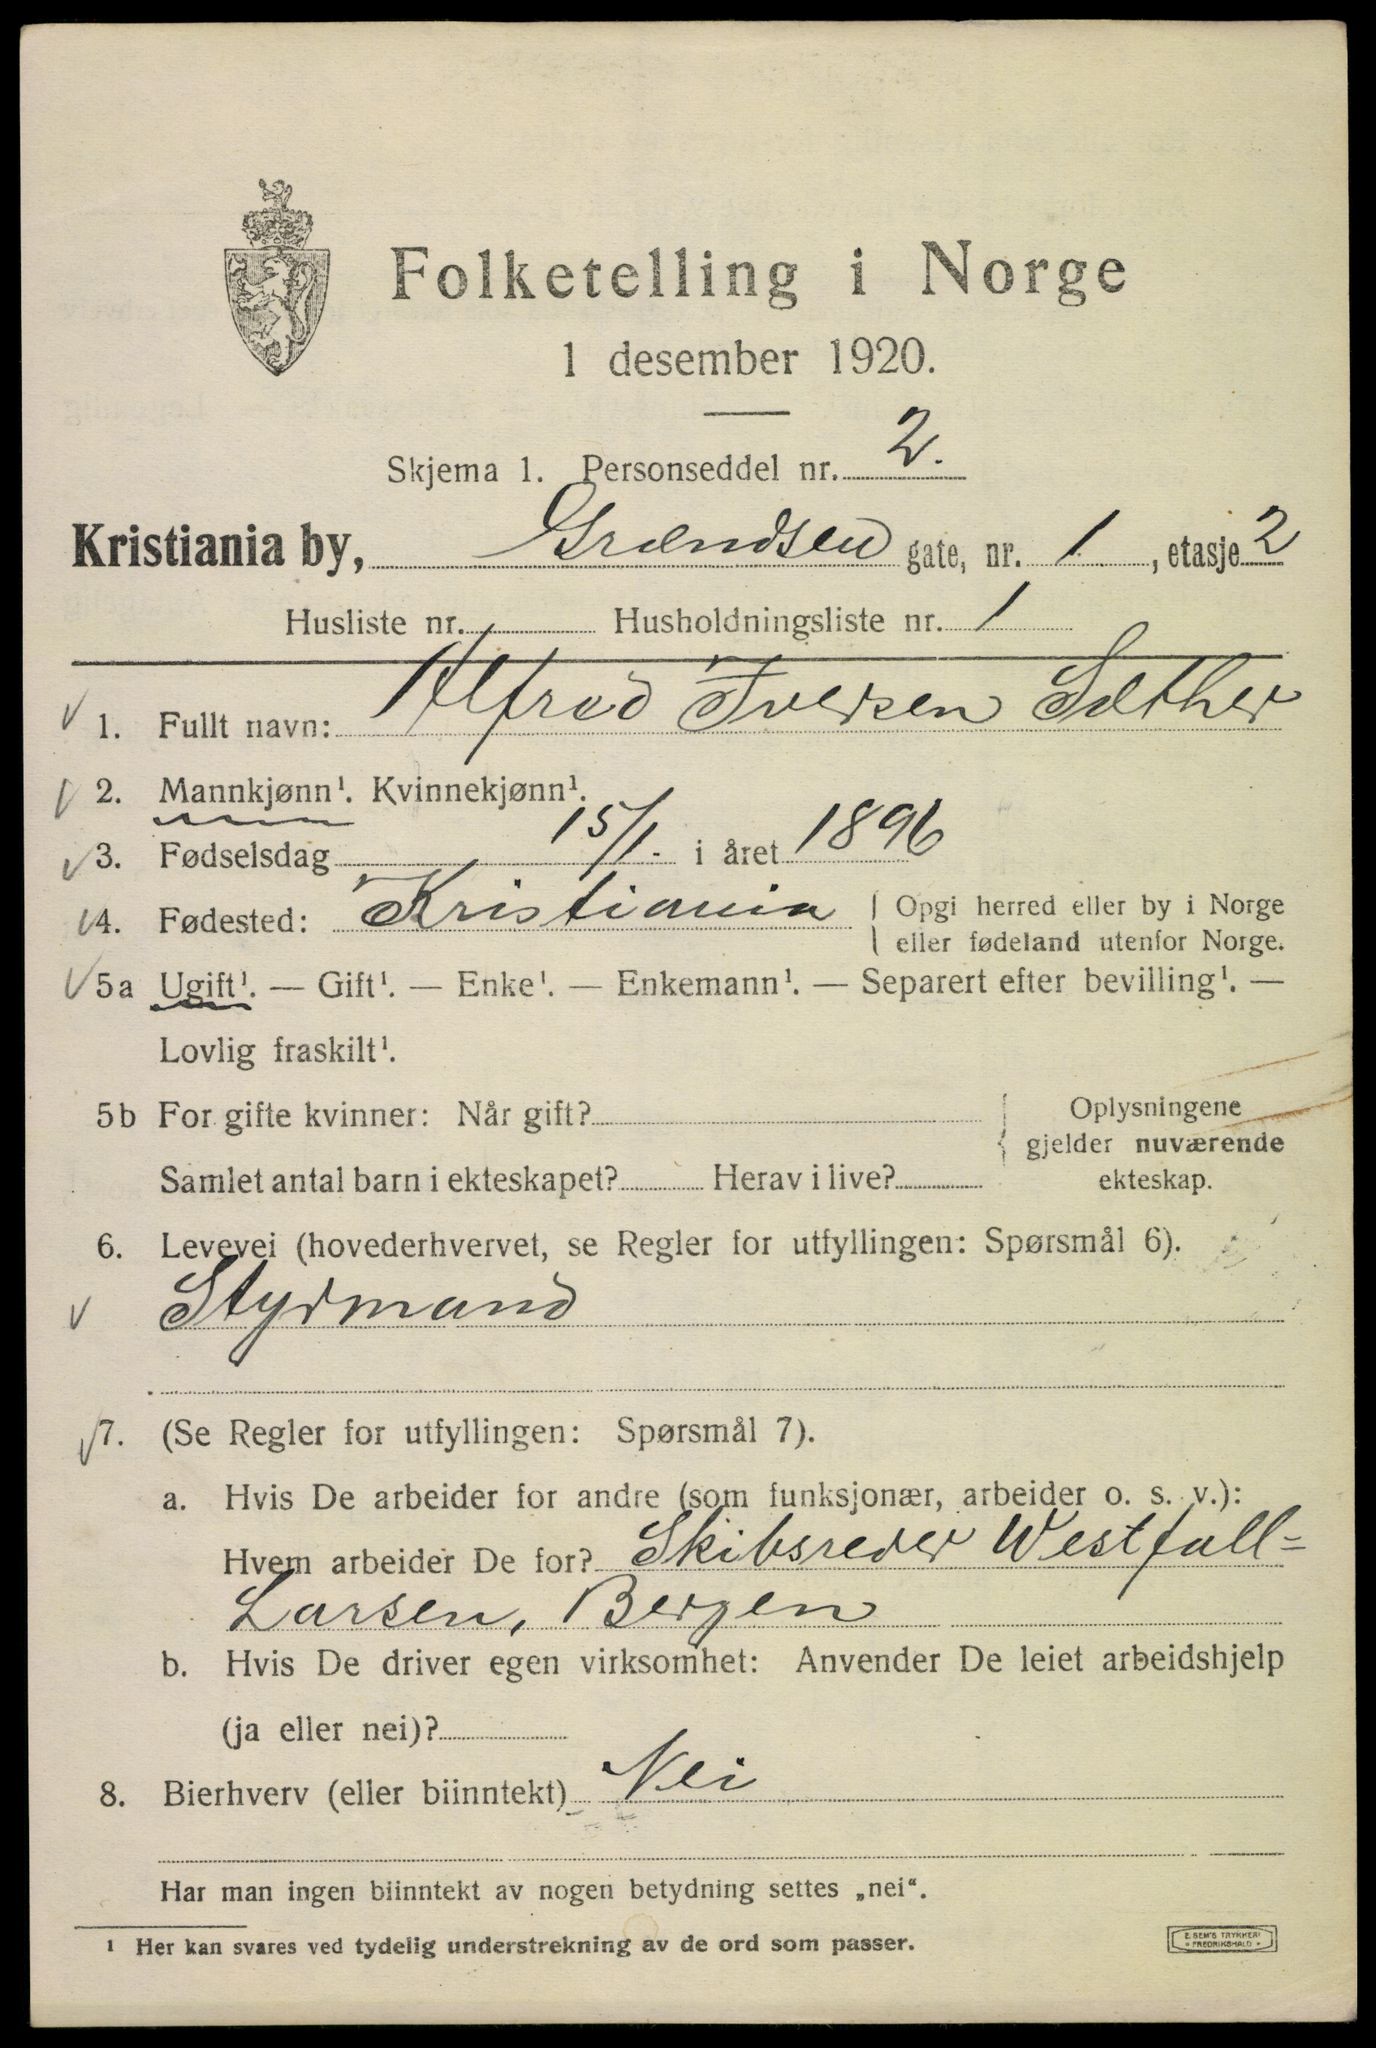 Folketelling i Norge
1 desember 1920.
Skjema 1. Personseddel nr. 2.
Kristiania by, Grændsen gate, nr. 1, etasje 2
Husliste nr. Husholdningsliste nr. 1
1. Fullt navn: Alfred Iversen Sæther
2. Mannkjønn¹. Kvinnekjønn¹.
3. Fødselsdag 15/1. i året 1896
4. Fødested: Kristiania { Opgi herred eller by i Norge
eller fødeland utenfor Norge.
5a Ugift¹. — Gift¹. — Enke¹. — Enkemann¹. — Separert efter bevilling¹. —
Lovlig fraskilt¹.
5b For gifte kvinner: Når gift? Oplysningene
gjelder nuværende
Samlet antal barn i ekteskapet? Herav i live? ekteskap.
6. Levevei (hovederhvervet, se Regler for utfyllingen: Spørsmål 6).
Styrmand
7. (Se Regler for utfyllingen: Spørsmål 7).
a. Hvis De arbeider for andre (som funksjonær, arbeider o. s. v.):
Hvem arbeider De for? Skibsreder Westfall=
Larsen, Bergen
b. Hvis De driver egen virksomhet: Anvender De leiet arbeidshjelp
(ja eller nei)?
8. Bierhverv (eller biinntekt) Nei
Har man ingen biinntekt av nogen betydning settes „nei“.
¹ Her kan svares ved tydelig understrekning av de ord som passer.
E. SEM'S TRYKKERI
FREDRIKSHALD